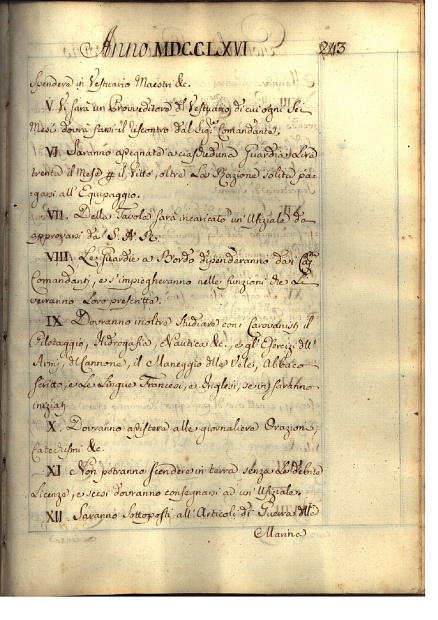 Anno MDCCLXVI 243
Spendera in Vestiario Maestri &c.
V. Vi sarà un Provveditore del Vestiario di cui ogni Sei
Mesi dovrà farsi il discontro dal Sig.r Comandante.
VI. Saranno assegnate a ciascheduna Guardia lire
trenta il Mese il Vitto, oltre La Razione solita pa-
garsi all'Equipaggio.
VII. Della Tavola sarà incaricato un'Ufiziale da
approvarsi da S. A. R.
VIII. Le Guardie a Bordo dipenderanno dai
Comandanti, e s'impiegheranno nelle funzioni che Li
verranno Loro prescritte.
IX. Dovranno inoltre Studiare con i Carovanisti il
Pilotaggio, Hidrografia, Nautica &c., e gl'Esercizi dell'
Armi, del Cannone, il Maneggio delle Vele, Abbaco
Scritto, e le Lingue Francese, e Inglese, se vi saranno
iniziati.
X. Dovranno assistere alle giornaliere Orazioni,
Catechismi &c.
XI. Non potranno scendere in terra senza Le debite
Licenze, e scesi dovranno consegnarsi ad un'Ufiziale.
XII. Saranno Sottoposti all'Articoli di Guerra della
Marina